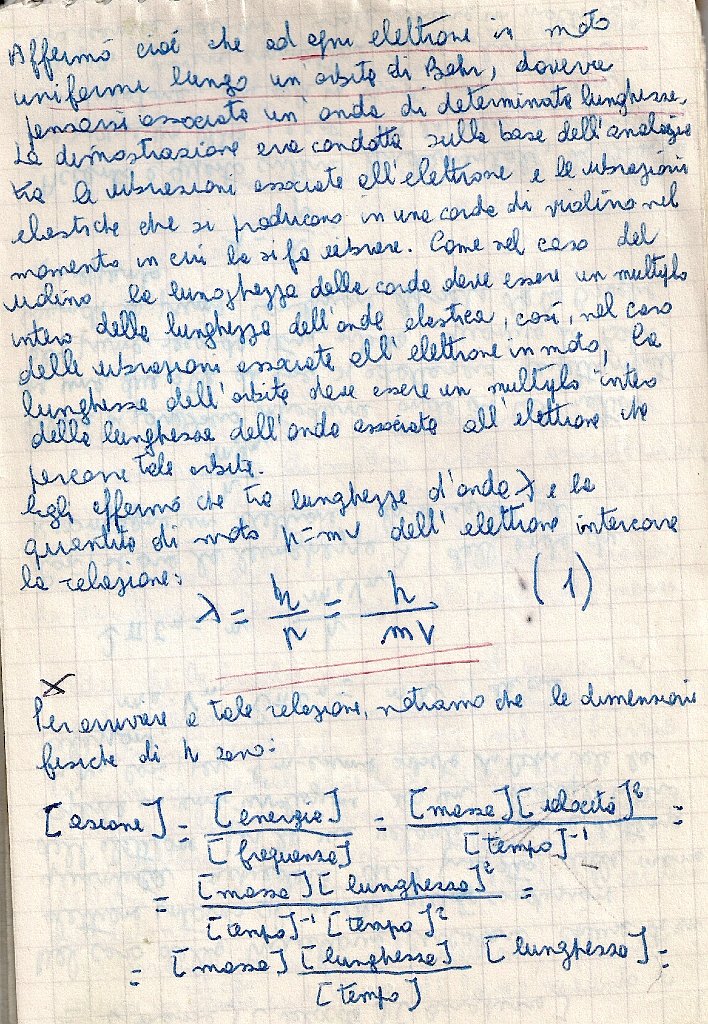 Affermò cioè che ad ogni elettrone in moto
uniforme lungo un'orbita di Bohr, doveva
pensarsi associata un'onda di determinata lunghezza.
La dimostrazione era condotta sulla base dell'analogia
tra le vibrazioni associate all'elettrone e le vibrazioni
elastiche che si producono in una corda di violino nel
momento in cui la si fa vibrare. Come nel caso del
violino la lunghezza della corda deve essere un multiplo
intero della lunghezza dell'onda elastica, così, nel caso
delle vibrazioni associate all'elettrone in moto, la
lunghezza dell'orbita deve essere un multiplo intero
della lunghezza dell'onda associata all'elettrone che
percorre tale orbita.
Egli affermò che tra lunghezza d'onda λ e la
quantità di moto p=mv dell'elettrone intercorre
la relazione:
λ = h/p = h/mv (1)
X
Per arrivare a tale relazione, notiamo che le dimensioni
fisiche di h sono:
[azione] = [energia]/[frequenza] = [massa][velocità]²/[tempo]⁻¹ =
= [massa][lunghezza]²/[tempo]⁻¹[tempo]² =
= [massa] [lunghezza]/[tempo] [lunghezza] =